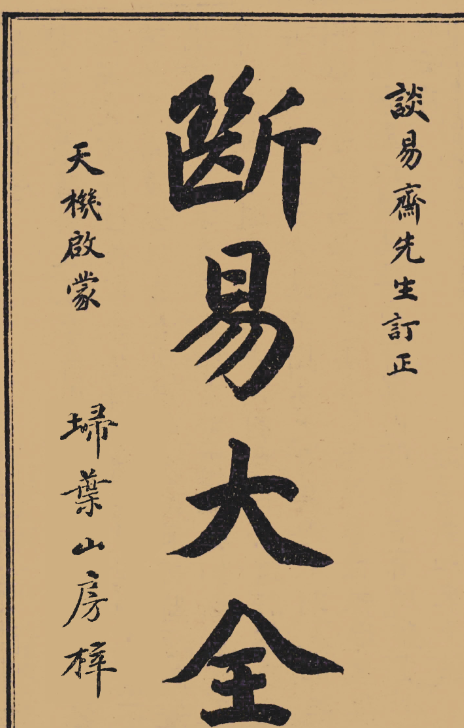 談易齋先生訂正
斷易大全
天機啟蒙
埽葉山房梓